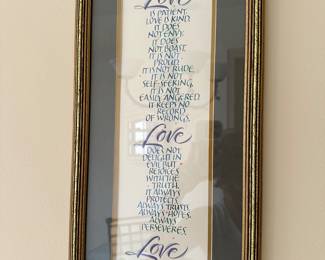 Love
IS PATIENT.
LOVE IS KIND.
IT DOES
NOT ENVY.
IT DOES
NOT BOAST.
IT IS NOT
PROUD.
IT IS NOT RUDE.
IT IS NOT
SELF-SEEKING.
IT IS NOT
EASILY ANGERED.
IT KEEPS NO
RECORD
OF WRONGS.
Love
DOES NOT
DELIGHT IN
EVIL BUT
REJOICES
WITH THE
TRUTH. IT
ALWAYS
PROTECTS,
ALWAYS TRUSTS,
ALWAYS HOPES,
ALWAYS
PERSEVERES.
Love